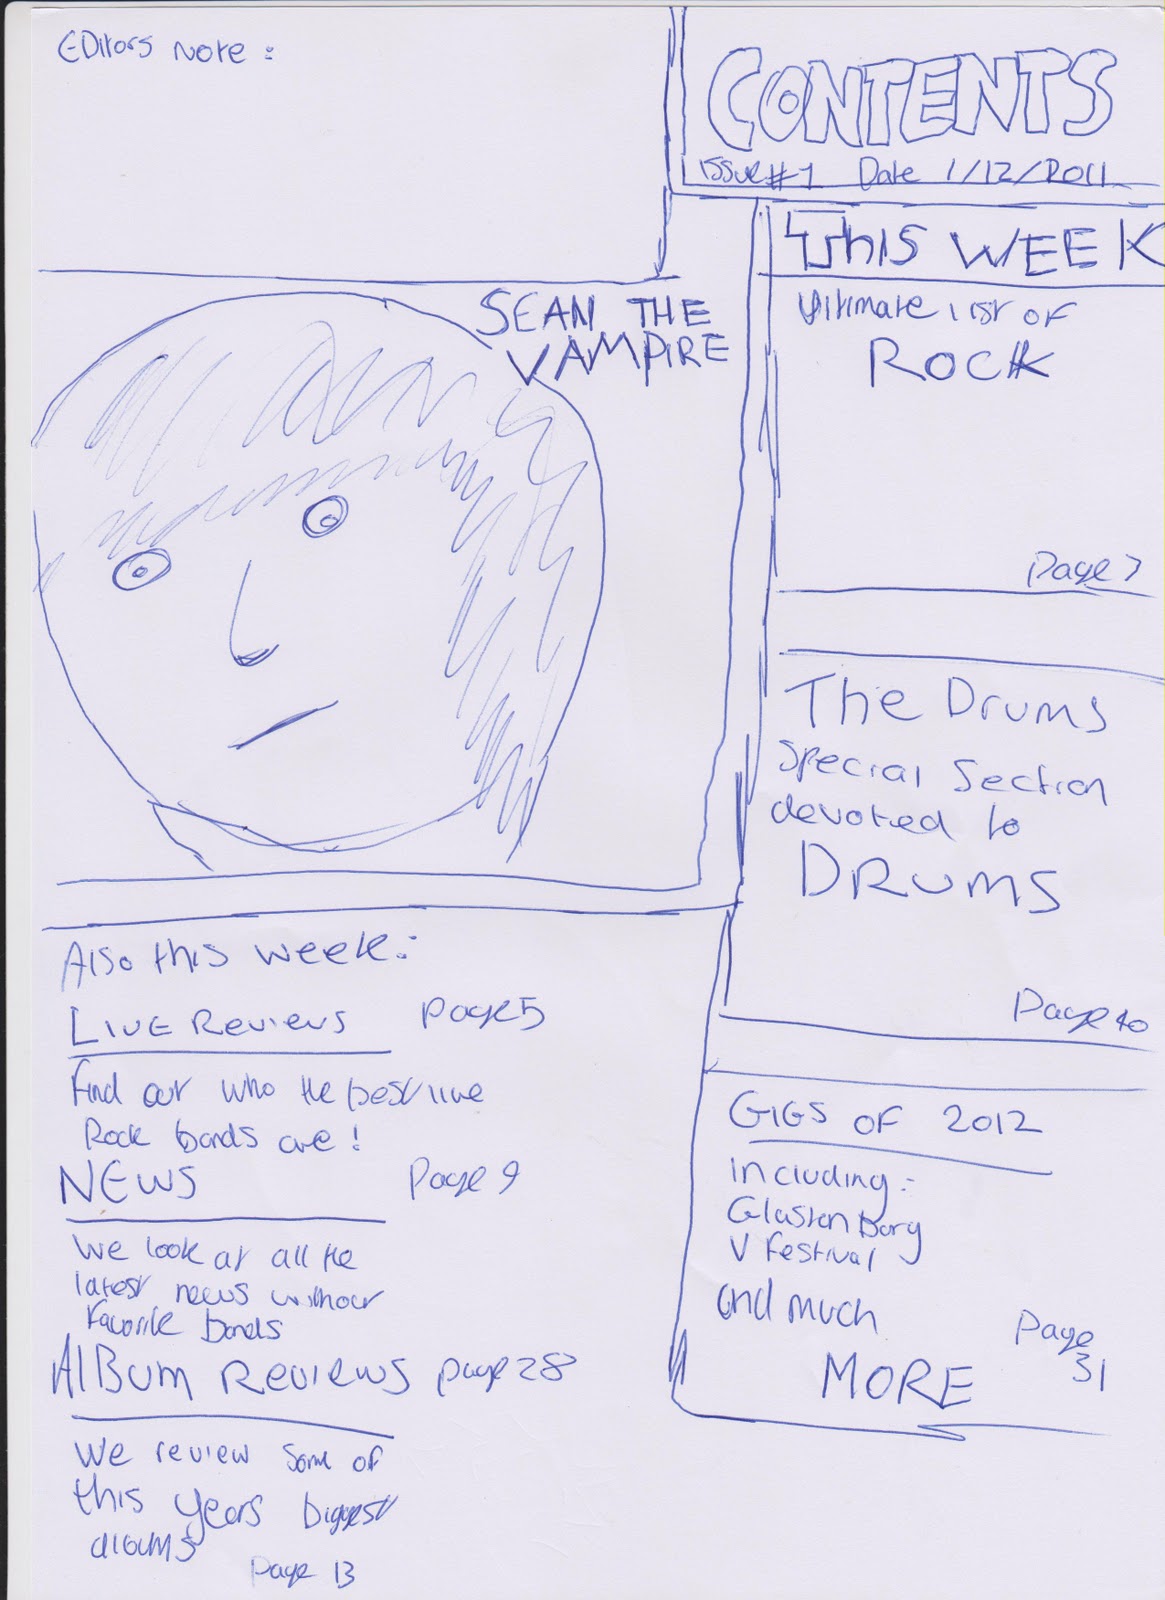 EDitors Note:
CONTENTS
ISSUE #1 Date 1/12/2011
THIS WEEK
Ultimate list of
ROCK
Page 7
SEAN THE
VAMPIRE
The Drums
Special Section
devoted to
DRUMS
Page 40
GIGS OF 2012
including:-
Glastonbory
V Festival
and much
MORE
Page
31
Also this week:-
LIVE Reviews Page 5
Find out who the best live
Rock bands are!
NEWS Page 9
We look at all the
latest news without
Favorite bands
AlBum Reviews page 28
We review some of
this years biggest
albums
Page 13